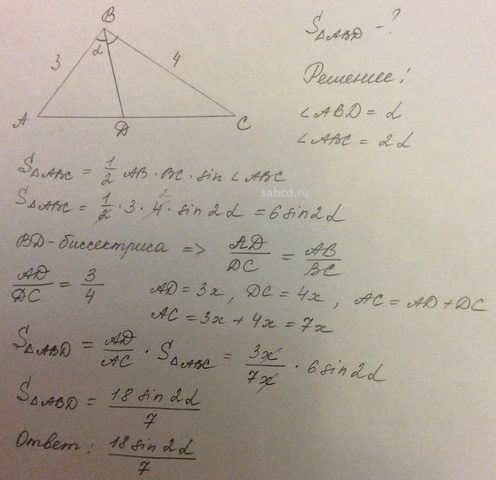 B
α
3
4
A
D
C
S△ABD - ?
Решение:
∠ABD = α
∠ABC = 2α
S△ABC = 1/2 AB · BC · sin ∠ABC
sabcd.ru
S△ABC = 1/2 · 3 · 4 2 · sin 2α = 6 sin 2α
BD - биссектриса => AD/DC = AB/BC
AD/DC = 3/4 AD = 3x, DC = 4x, AC = AD + DC
AC = 3x + 4x = 7x
S△ABD = AD/AC · S△ABC = 3x/7x · 6 sin 2α
S△ABD = 18 sin 2α/7
Ответ: 18 sin 2α/7